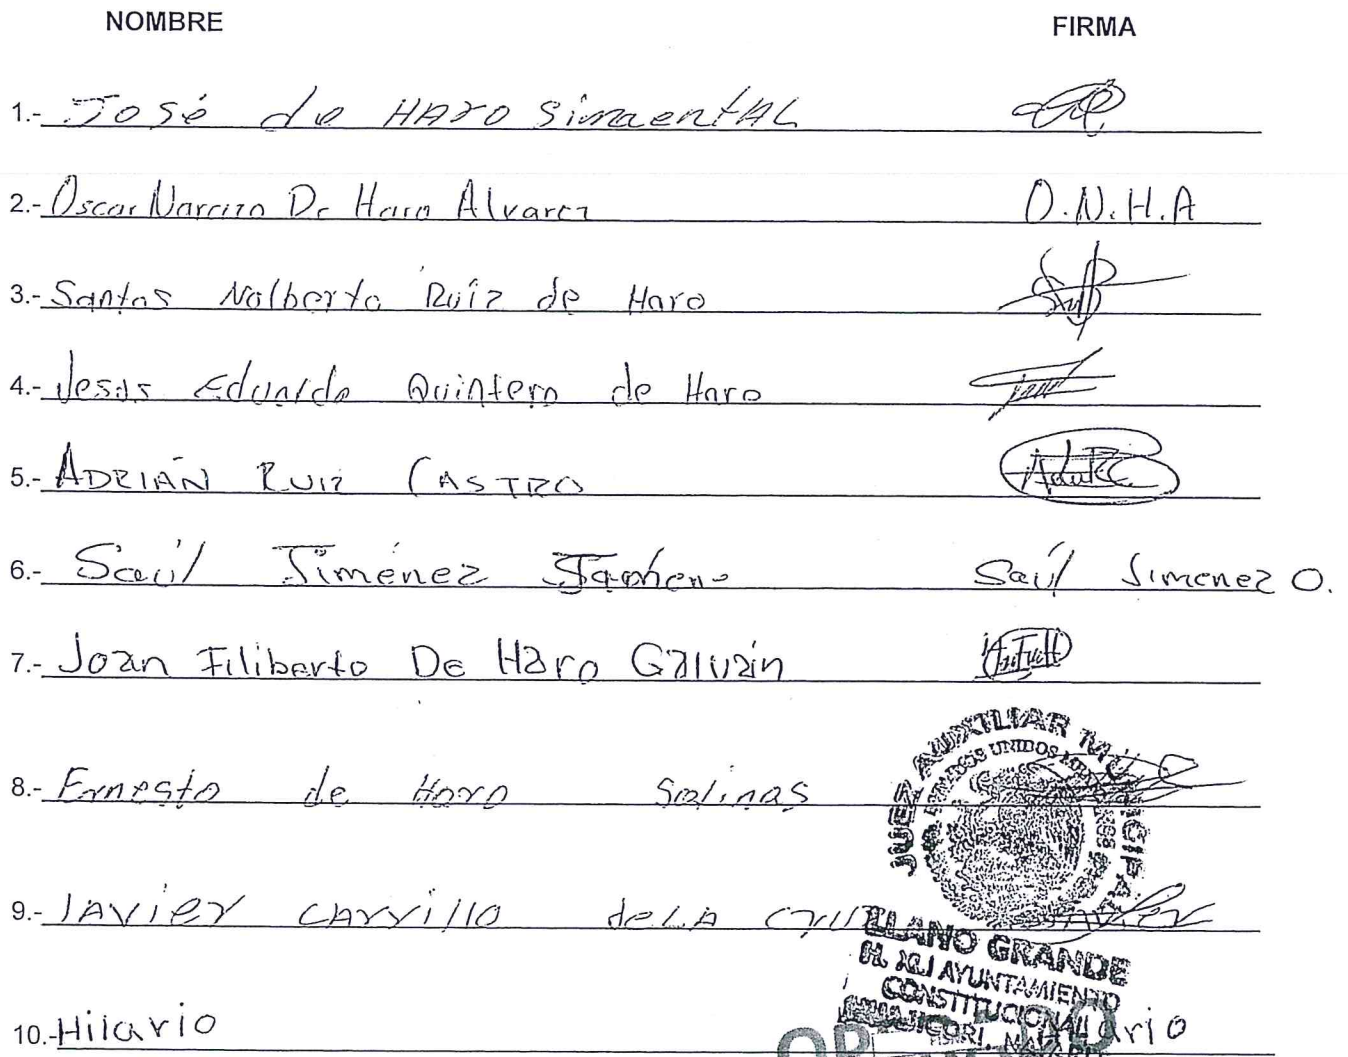 NOMBRE FIRMA
1.- José de HARO SimaentAL
2.- Oscar Narcizo De Haro Alvarez O.N.H.A
3.- Santos Nolberto Ruíz de Haro
4.- Jesus Eduardo Quintero de Haro
5.- ADRIÁN RUIZ CASTRO
6.- Saúl Jiménez Saúl Jimenez O.
7.- Joan Filiberto De Haro Galván
8.- Ernesto de Haro Salinas
9.- JAvier CArrillo deLA Cruz
10.- Hilario
JUEZ AUXILIAR MUNICIPAL
ESTADOS UNIDOS MEXICANOS
LLANO GRANDE
H. XLI AYUNTAMIENTO
CONSTITUCIONAL
HUAJICORI, NAYARIT